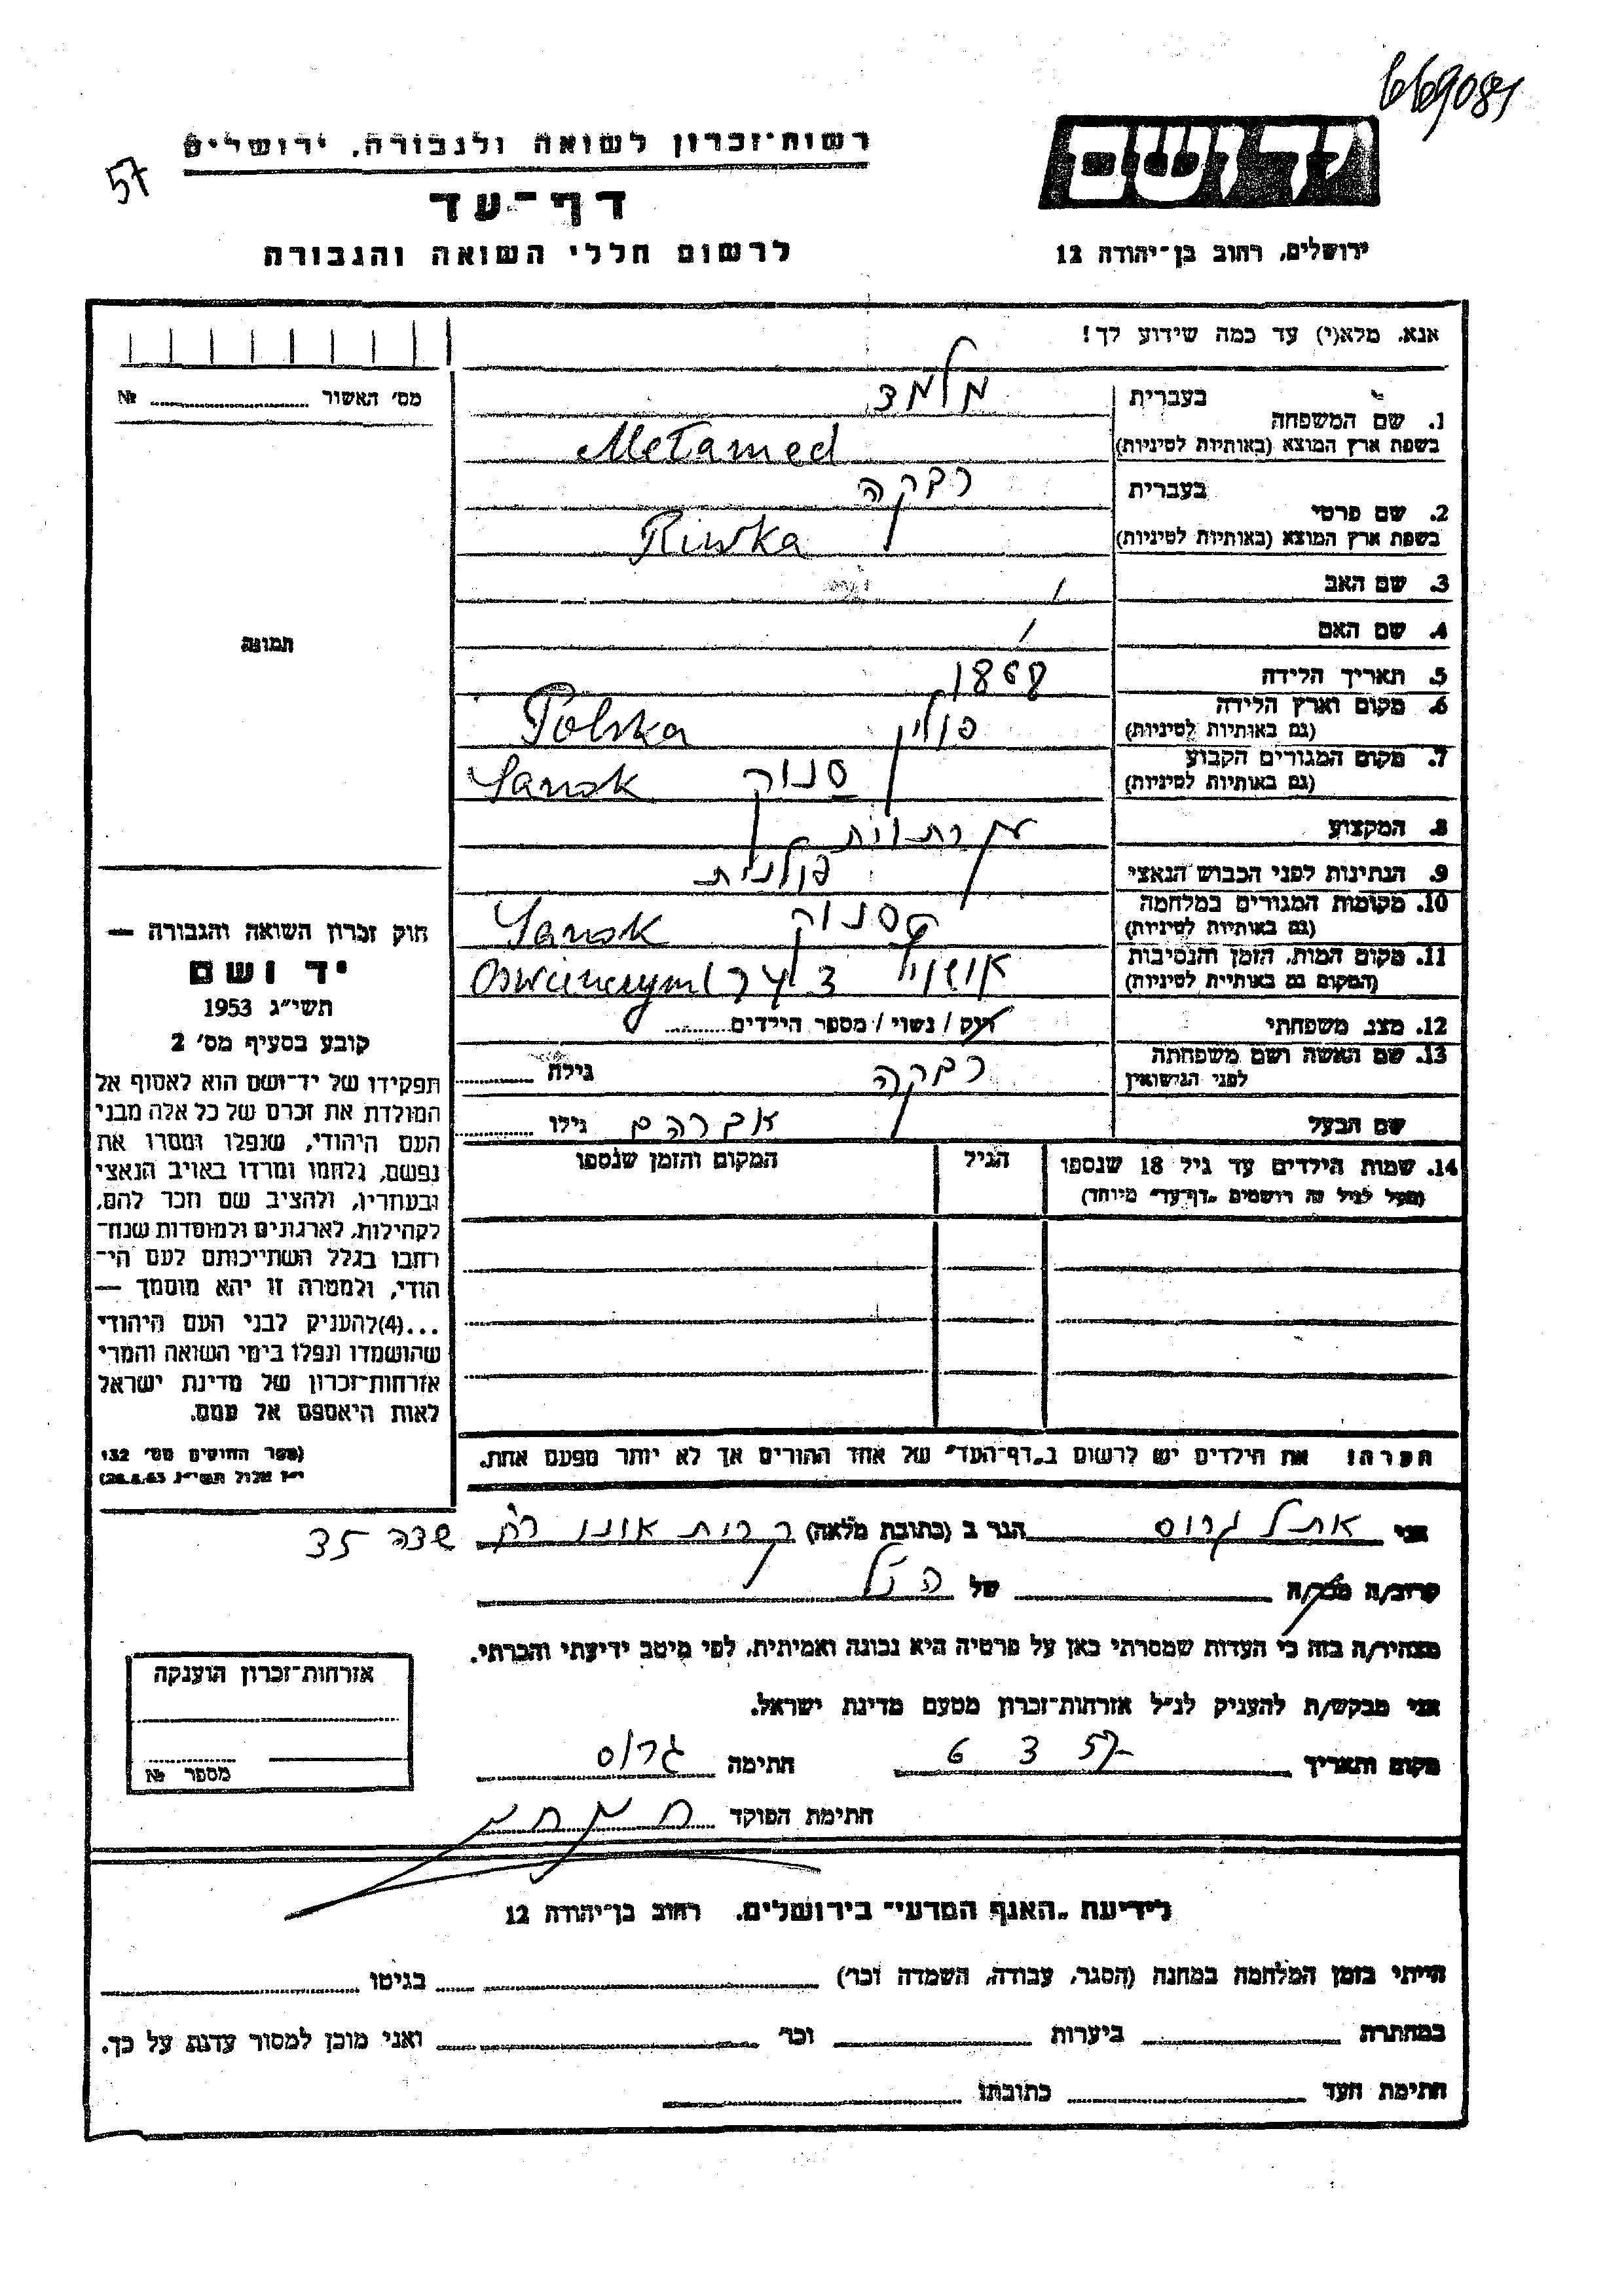 669081
57
רשות־זכרון לשואה ולגבורה, ירושלים
דף־עד
לרשום חללי השואה והגבורה
יד ושם
ירושלים, רחוב בן־יהודה 12
אנא, מלא(י) עד כמה שידוע לך!
מס׳ האשור № 
בעברית מלמד
1. שם המשפחה
בשפת ארץ המוצא (באותיות לטיניות) Metamed
בעברית רבקה
2. שם פרטי
בשפת ארץ המוצא (באותיות לטיניות) Riwka
3. שם האב /
4. שם האם /
תמונה
5. תאריך הלידה 1868
6. מקום וארץ הלידה פולין Polska
(גם באותיות לטיניות)
7. מקום המגורים הקבוע סנוק Sanok
(גם באותיות לטיניות)
8. המקצוע
9. הנתינות לפני הכבוש הנאצי פולנית
10. מקומות המגורים במלחמה סנוק Sanok
(גם באותיות לטיניות)
11. מקום המות, הזמן והנסיבות
(המקום גם באותיית לטיניות)
12. מצב משפחתי רוק / נשוי / מספר הילדים
13. שם האשה ושם משפחתה רבקה גילה
לפני הנישואין
שם הבעל אברהם גילו
14. שמות הילדים עד גיל 18 שנספו הגיל המקום והזמן שנספו
(מעל לגיל זה רושמים „דף־עד״ מיוחד)
הערה! את הילדים יש לרשום ב„דף־העד״ של אחד ההורים אך לא יותר מפעם אחת.
חוק זכרון השואה והגבורה —
יד ושם
תשי״ג 1953
קובע בסעיף מס׳ 2
תפקידו של יד־ושם הוא לאסוף אל
המולדת את זכרם של כל אלה מבני
העם היהודי, שנפלו ומסרו את
נפשם, נלחמו ומרדו באויב הנאצי
ובעוזריו, ולהציב שם וזכר להם,
לקהילות, לארגונים ולמוסדות שנח־
רחבו בגלל השתייכותם לעם הי־
הודי, ולמטרה זו יהא מוסמך —
...(4)להעניק לבני העם היהודי
שהושמדו ונפלו בימי השואה והמרי
אזרחות־זכרון של מדינת ישראל
לאות היאספם אל עמם.
(ספר החוקים מס׳ 132
י״ז אלול תשי״ג 28.8.53)
אני אתל גרוס הגר ב (כתובת מלאה) קרית אונו רח שדה 35
קרוב/ה מכר/ה של הנ״ל
מצהיר/ה בזה כי העדות שמסרתי כאן על פרטיה היא נכונה ואמיתית, לפי מיטב ידיעתי והכרתי.
אני מבקש/ת להעניק לנ״ל אזרחות־זכרון מטעם מדינת ישראל.
מקום ותאריך 6 3 57 חתימה גרוס
חתימת הפוקד
אזרחות־זכרון הוענקה
מספר №
לידיעת „האגף המדעי״ בירושלים, רחוב בן־יהודה 12
הייתי בזמן המלחמה במחנה (הסגר, עבודה, השמדה וכו׳) בגיטו
במחתרת ביערות וכו׳ ואני מוכן למסור עדות על כך.
חתימת העד כתובתו